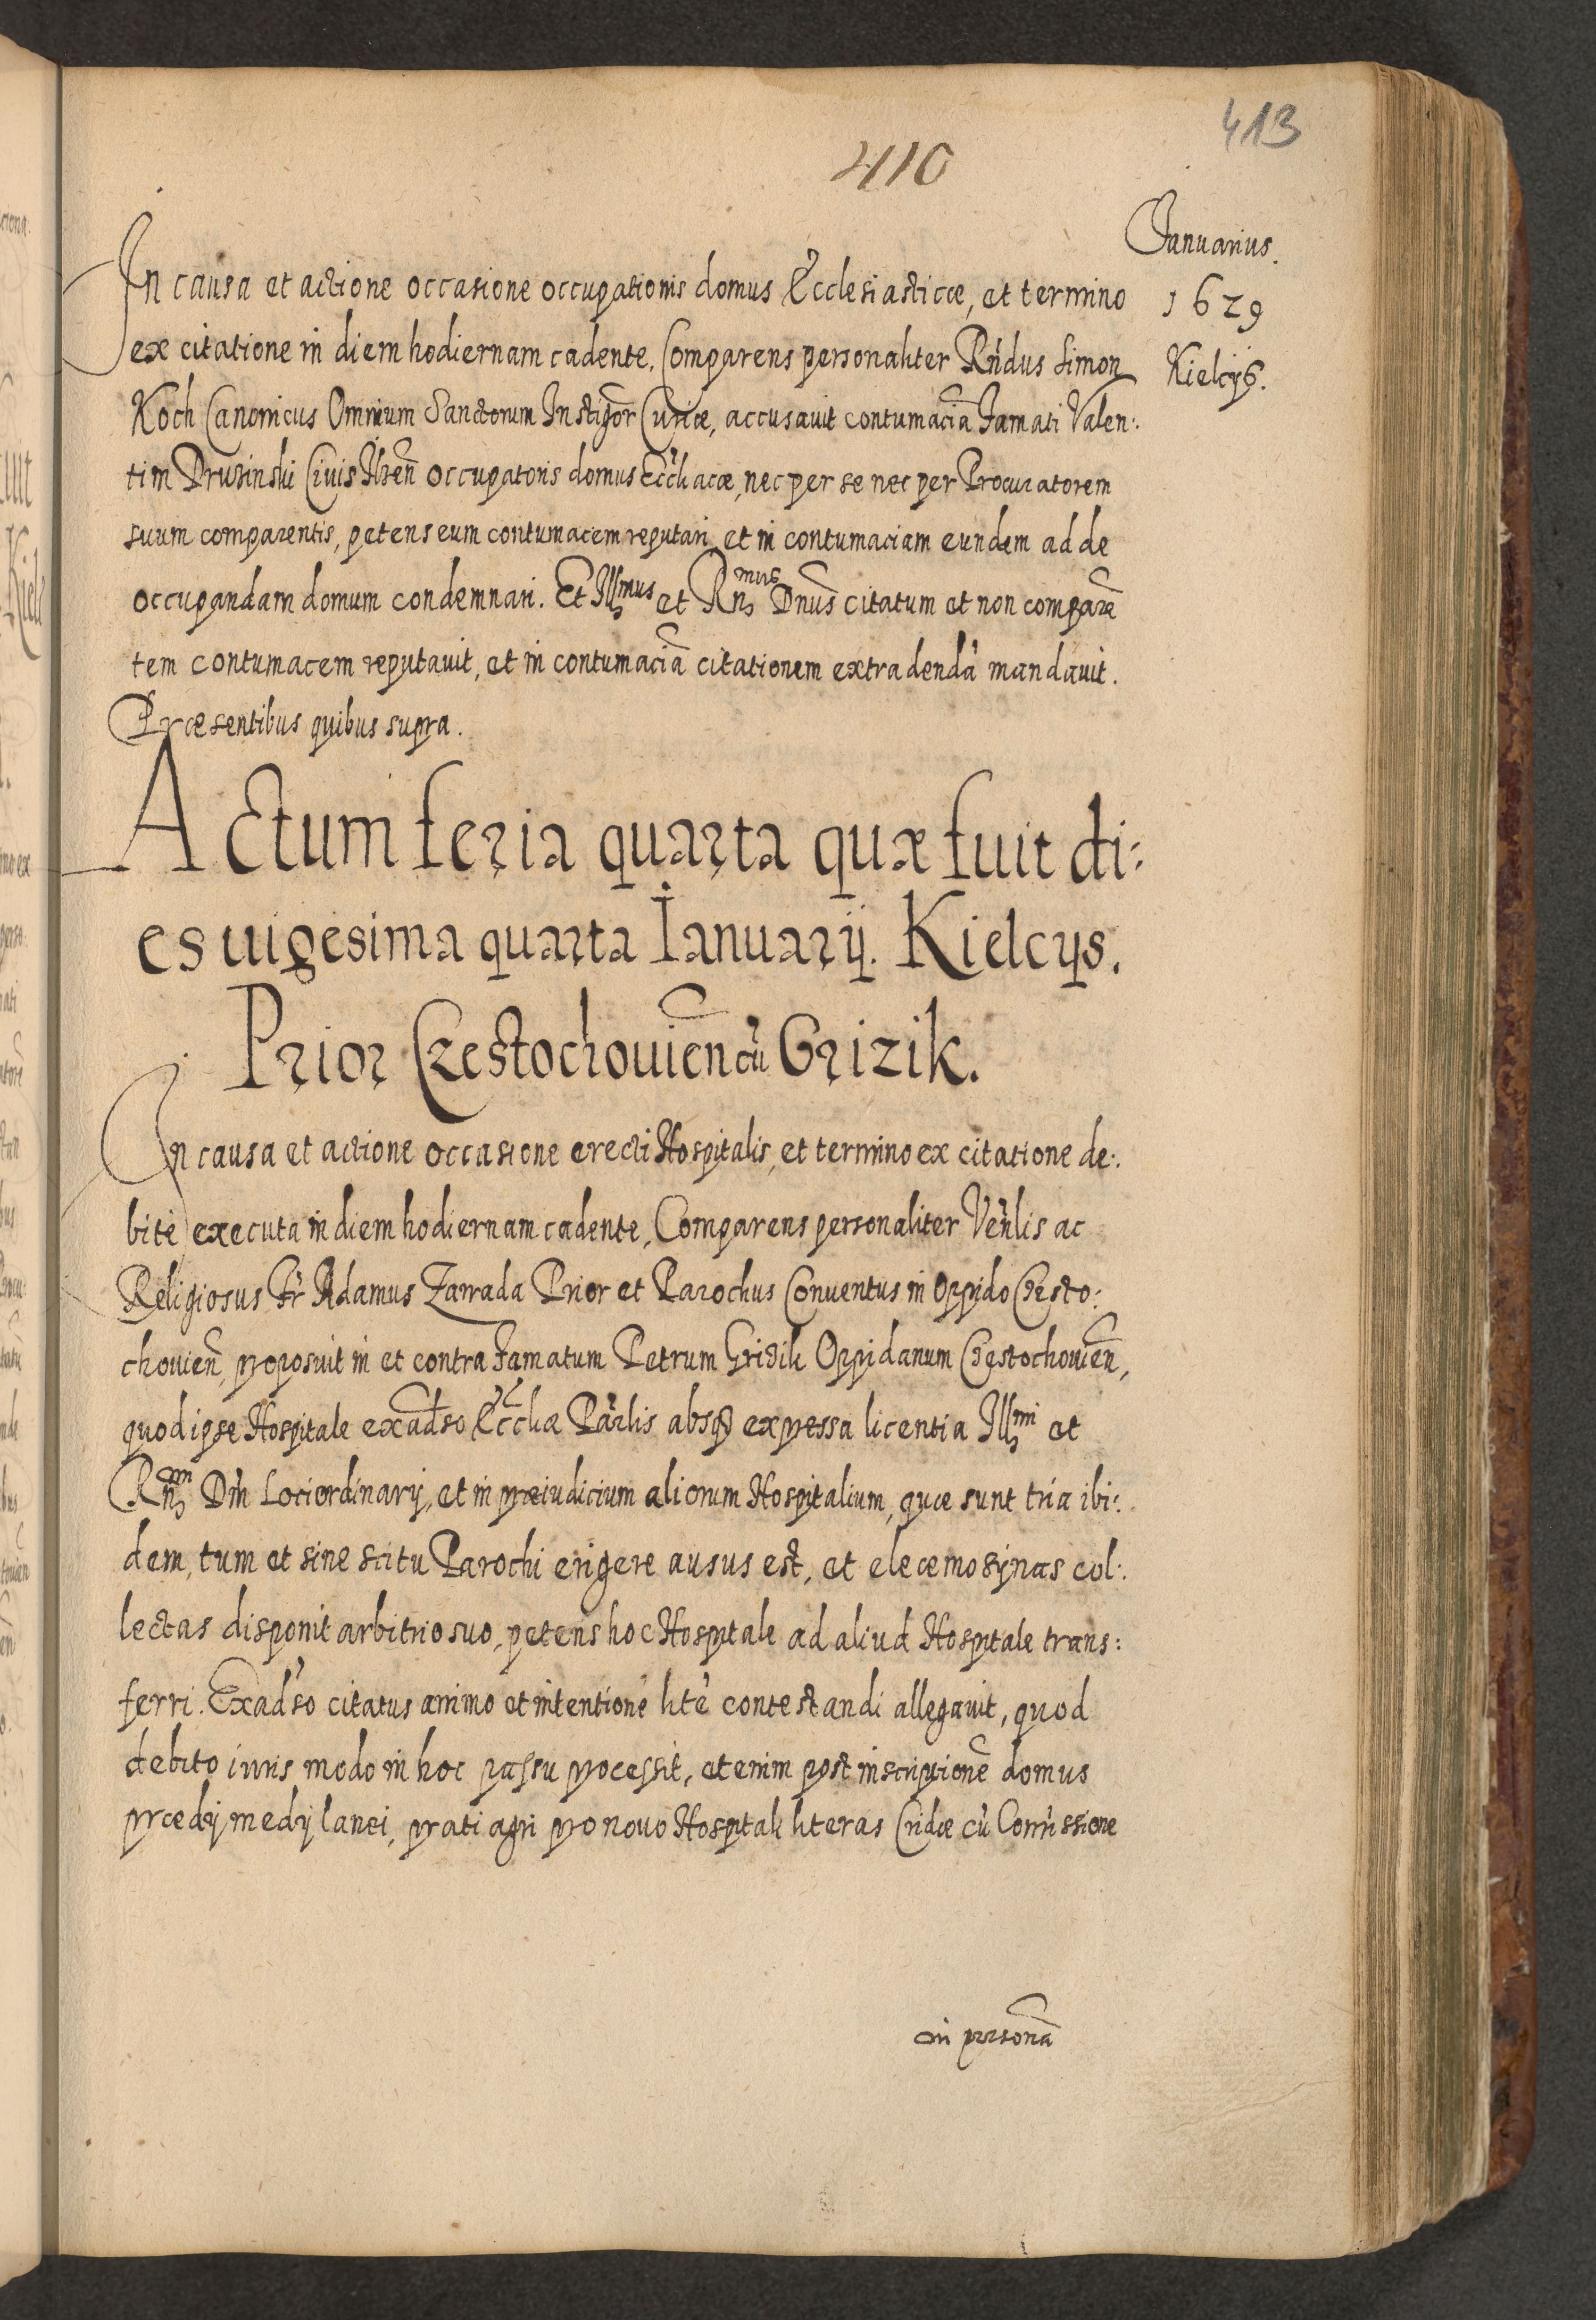 413
410
Januarius.
1629
Kielcÿs.
In causa et actione occasione occupationis domus Ecclesiasticæ, et termino
ex citatione in diem hodiernam cadente. Comparens personaliter Rñdus Simon
Koch Canonicus Omnium Sanctorum Instigõr Curiæ, accusauit contumaciã Famati Valen:
tim Drusinski Ciuis Ilzeñ occupatoris domus Ecclīacæ, nec per se nec per Procuratorem
suum comparentis, petens eum contumacem reputari et in contumaciam eundem ad de
occupandam domum condemnari. Et Illmus et Rnmus Dnus̃ citatum et non comparẽ
tem contumacem reputauit, et in contumaciã citationem extradendã mandauit.
Præsentibus quibus supra.
Actum feria quarta quæ fuit di:
es uigesima quarta Ianuarij. Kielcijs.
Prior Czestochouieñ cũ Grizik.
In causa et actione occasione erecti Hospitalis, et termino ex citatione de:
bite executa in diem hodiernam cadente, Comparens personaliter Veñlis ac
Religiosus Fr̃ Adamus Zarrada Prior et Parochus Conuentus in Oppido Czesto:
chouieñ, proposuit in et contra Famatum Petrum Grizik Oppidanum Czestochouieñ,
quod ipse Hospitale exad̃so Ecc̃liæ Par̃lis absq₃ expressa licentia Illmi et
Rnmi Dñi Loci ordinarij, et in præiudicium aliorum Hospitalium, quæ sunt tria ibi:
dem, tum et sine scitu Parochi erigere ausus est, et eleemosÿnas col:
lectas disponit arbitrio suo, petens hoc Hospitale ad aliud Hospitale trans:
ferri. Exad̃so citatus animo et intentione litẽ contestandi allegauit, quod
debito iuris modo in hoc passu processit, etenim post inscriptionẽ domus
prædij medij lanei, prati agri pro nouo Hospitali literas Cridæ cũ Com̃issione
in personã